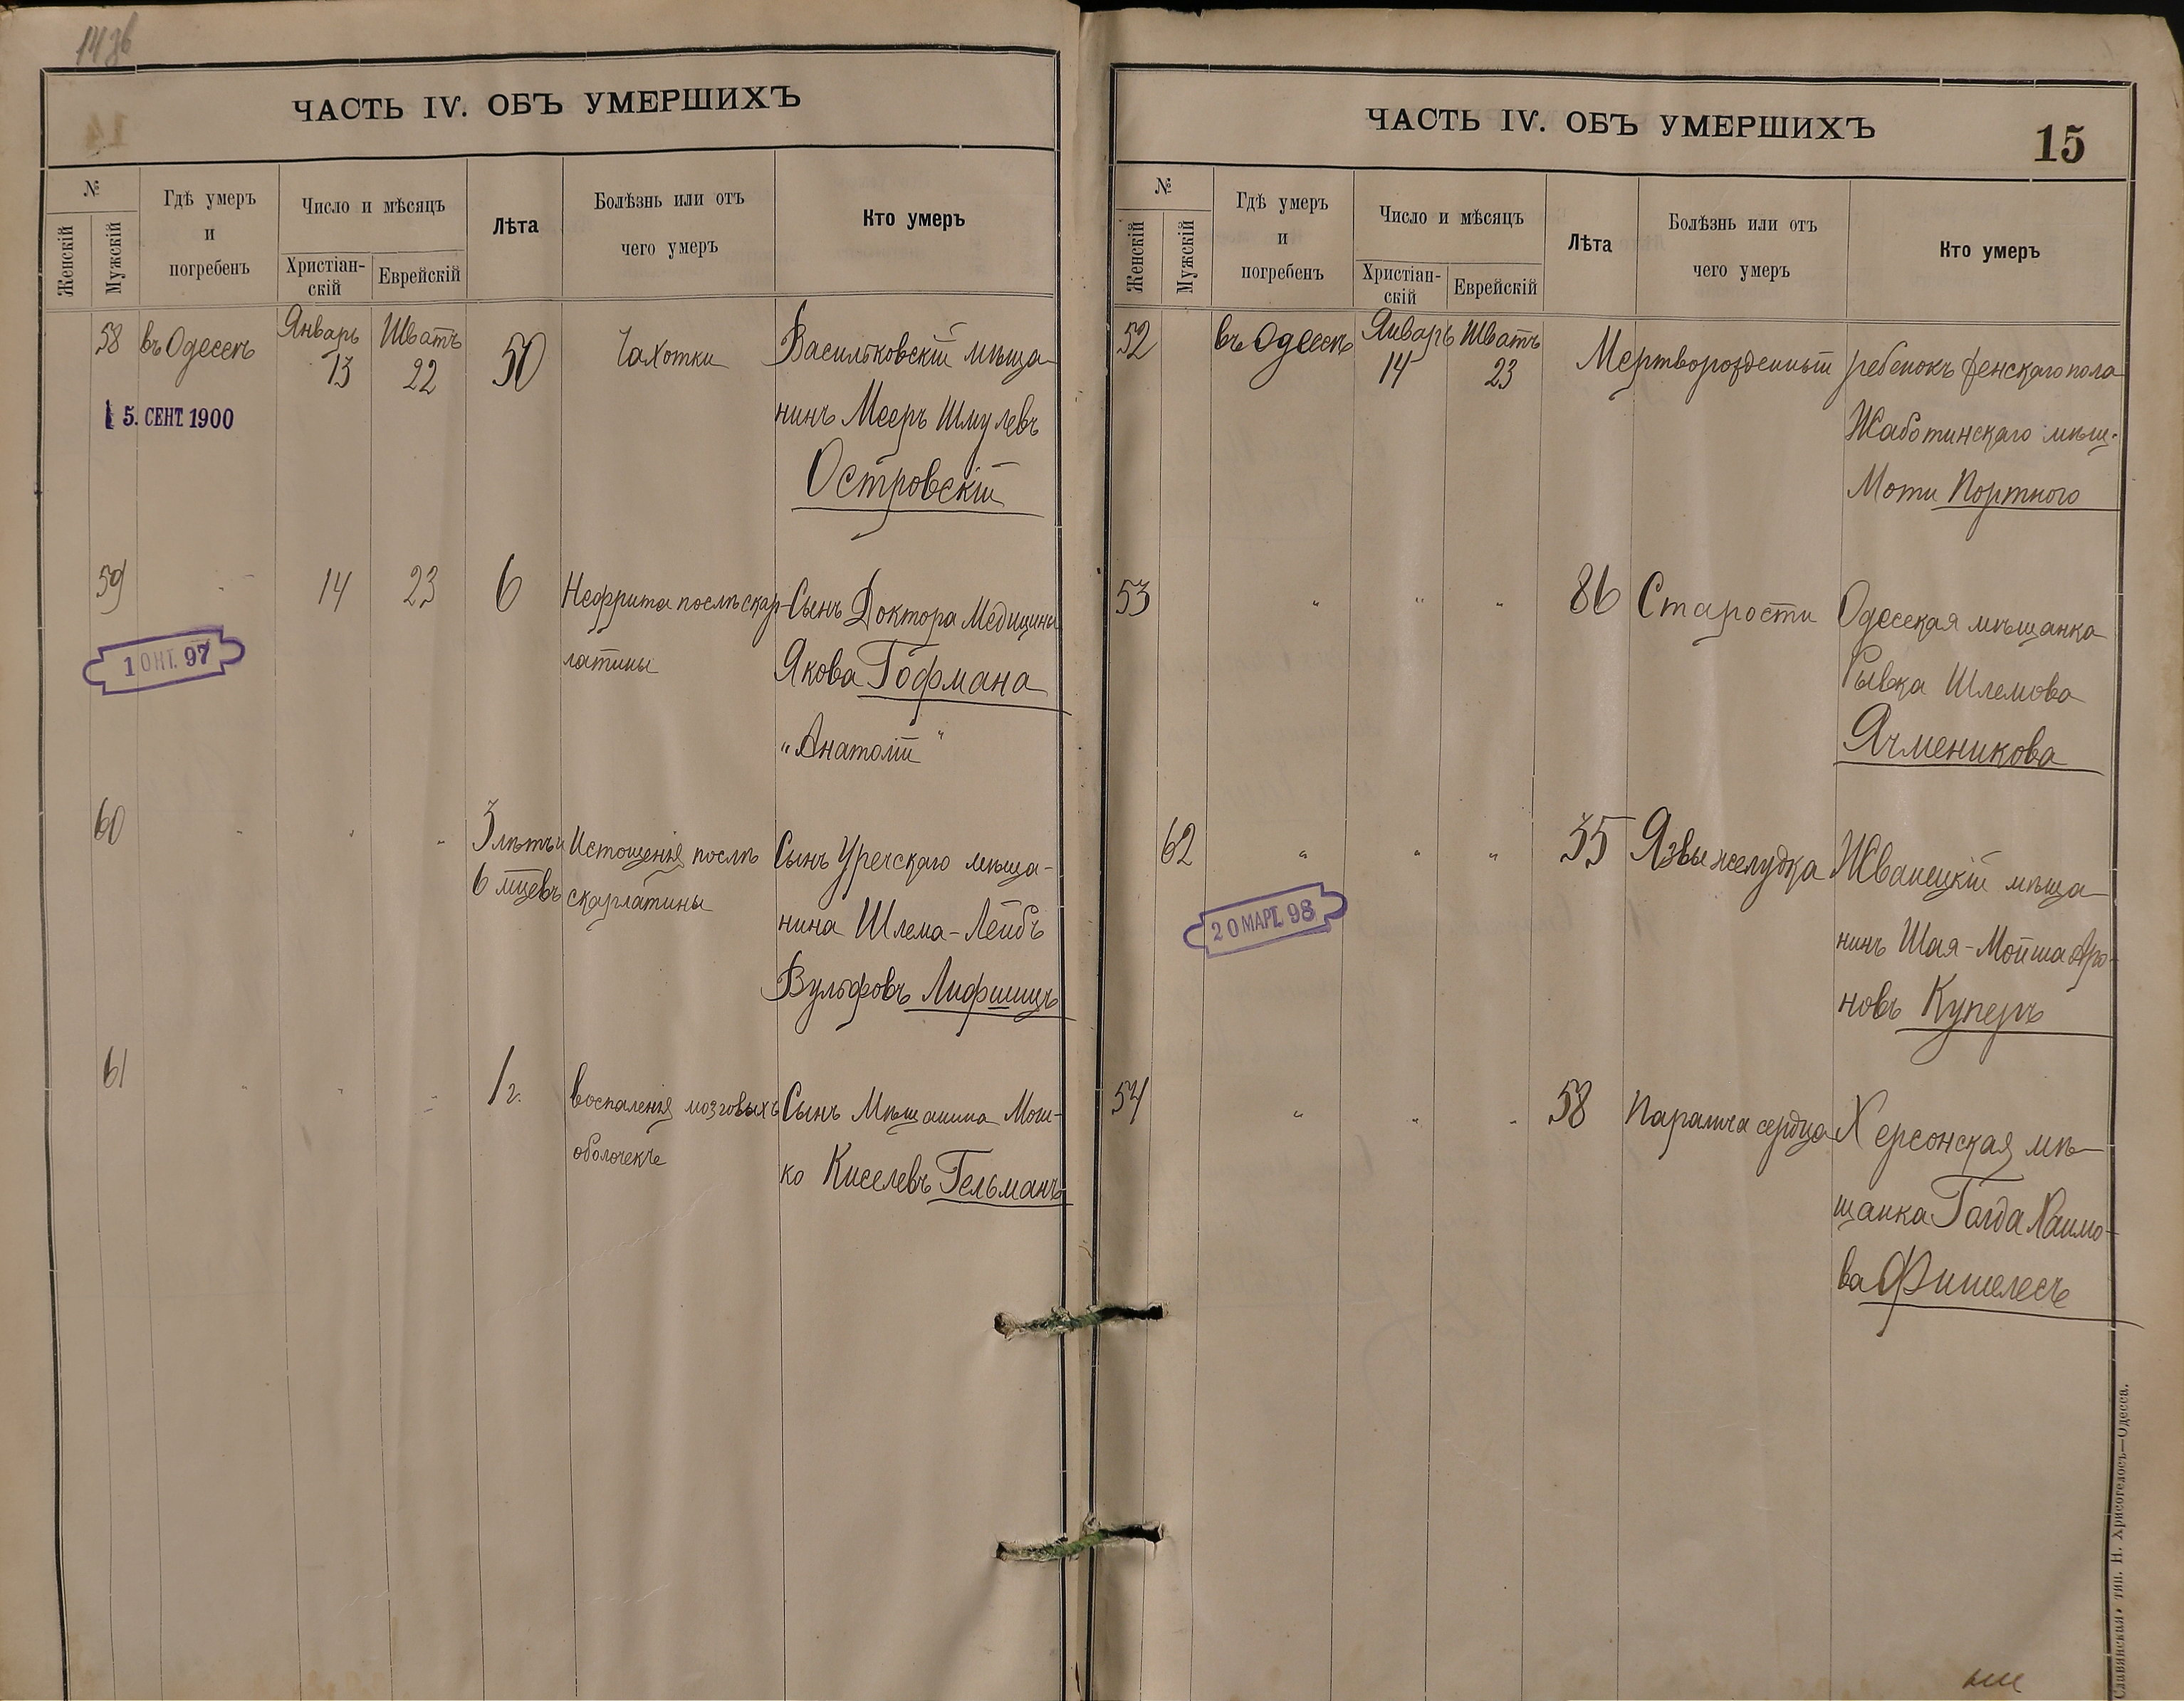 14 зв
ЧАСТЬ IV. ОБЪ УМЕРШИХЪ
№
Женскій
Мужскій
Гдѣ умеръ
и
погребенъ
Число и мѣсяцъ
Христіан-
скій
Еврейскій
Лѣта
Болѣзнь или отъ
чего умеръ
Кто умеръ
58 въ Одессѣ Январь 13 Шватъ 22 50 Чахотки Васильковскій мѣща-
нинъ Мееръ Шмулевъ
Островскій
5. СЕНТ. 1900
59 " 14 23 6 Нефрита послѣ скар- Сынъ Доктора Медицины
латины Якова Гофмана
"Анатолій"
1 ОКТ. 97
60 " " " 3 лѣтъ и Истощенія послѣ Сынъ Уречскаго мѣща-
6 мцевъ скарлатины нина Шлема-Лейбъ
Вульфовъ Лифшицъ
61 " " " 1 г. Воспаленія мозговыхъ Сынъ Мѣщанина
оболочекъ ко Киселевъ Гельманъ
ЧАСТЬ IV. ОБЪ УМЕРШИХЪ
15
№
Женскій
Мужскій
Гдѣ умеръ
и
погребенъ
Число и мѣсяцъ
Христіан-
скій
Еврейскій
Лѣта
Болѣзнь или отъ
чего умеръ
Кто умеръ
52 въ Одессѣ Январь 14 Шватъ 23 Мертворожденный ребенокъ женскаго пола
Жаботинскаго мѣщ.
Моти Портного
53 " " " 86 Старости Одесская мѣщанка
Рывка Шлемова
Ячменикова
62 " " " 35 Язвы желудка Жванецкій мѣща-
нинъ Шая-Мойша Аро-
новъ Куперъ
20 МАРТ. 98
54 " " " 58 Паралича сердца Херсонская мѣ-
щанка Голда Хаимо-
ва Фишелесъ
Славянская тип. Н. Хрисогелосъ—Одесса.